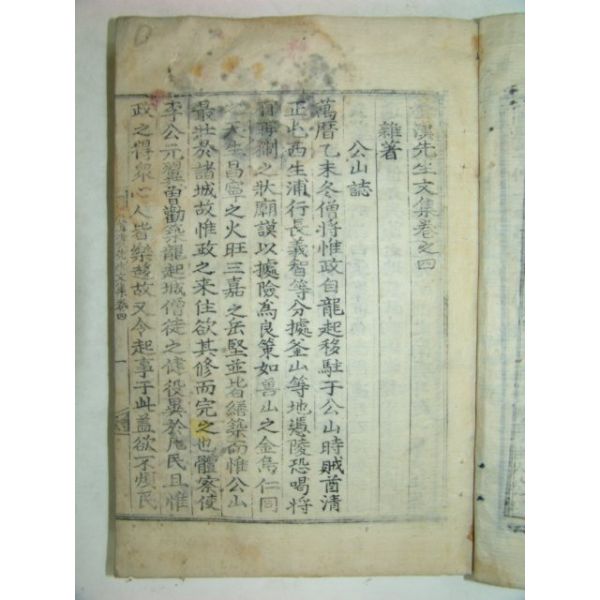 溪先生文集卷之四
雜著
公山誌
萬曆乙未冬僧將惟政自龍起移駐于公山時賊酋淸
正屯西生浦行長義智等分據釜山等地憑陵恐喝將
有再猘之狀廟謨以據險爲良策如善山之金烏仁同
天生昌寧之火旺三嘉之岳堅並皆繕築而惟公山
最壯於諸城故惟政之来住欲其修而完之也體察使
李公元翼曾勸築龍起城僧徒之健役異於凡民且惟
政之得衆心人皆樂趨故又令起事于此盖欲不煩民
文集卷四
一